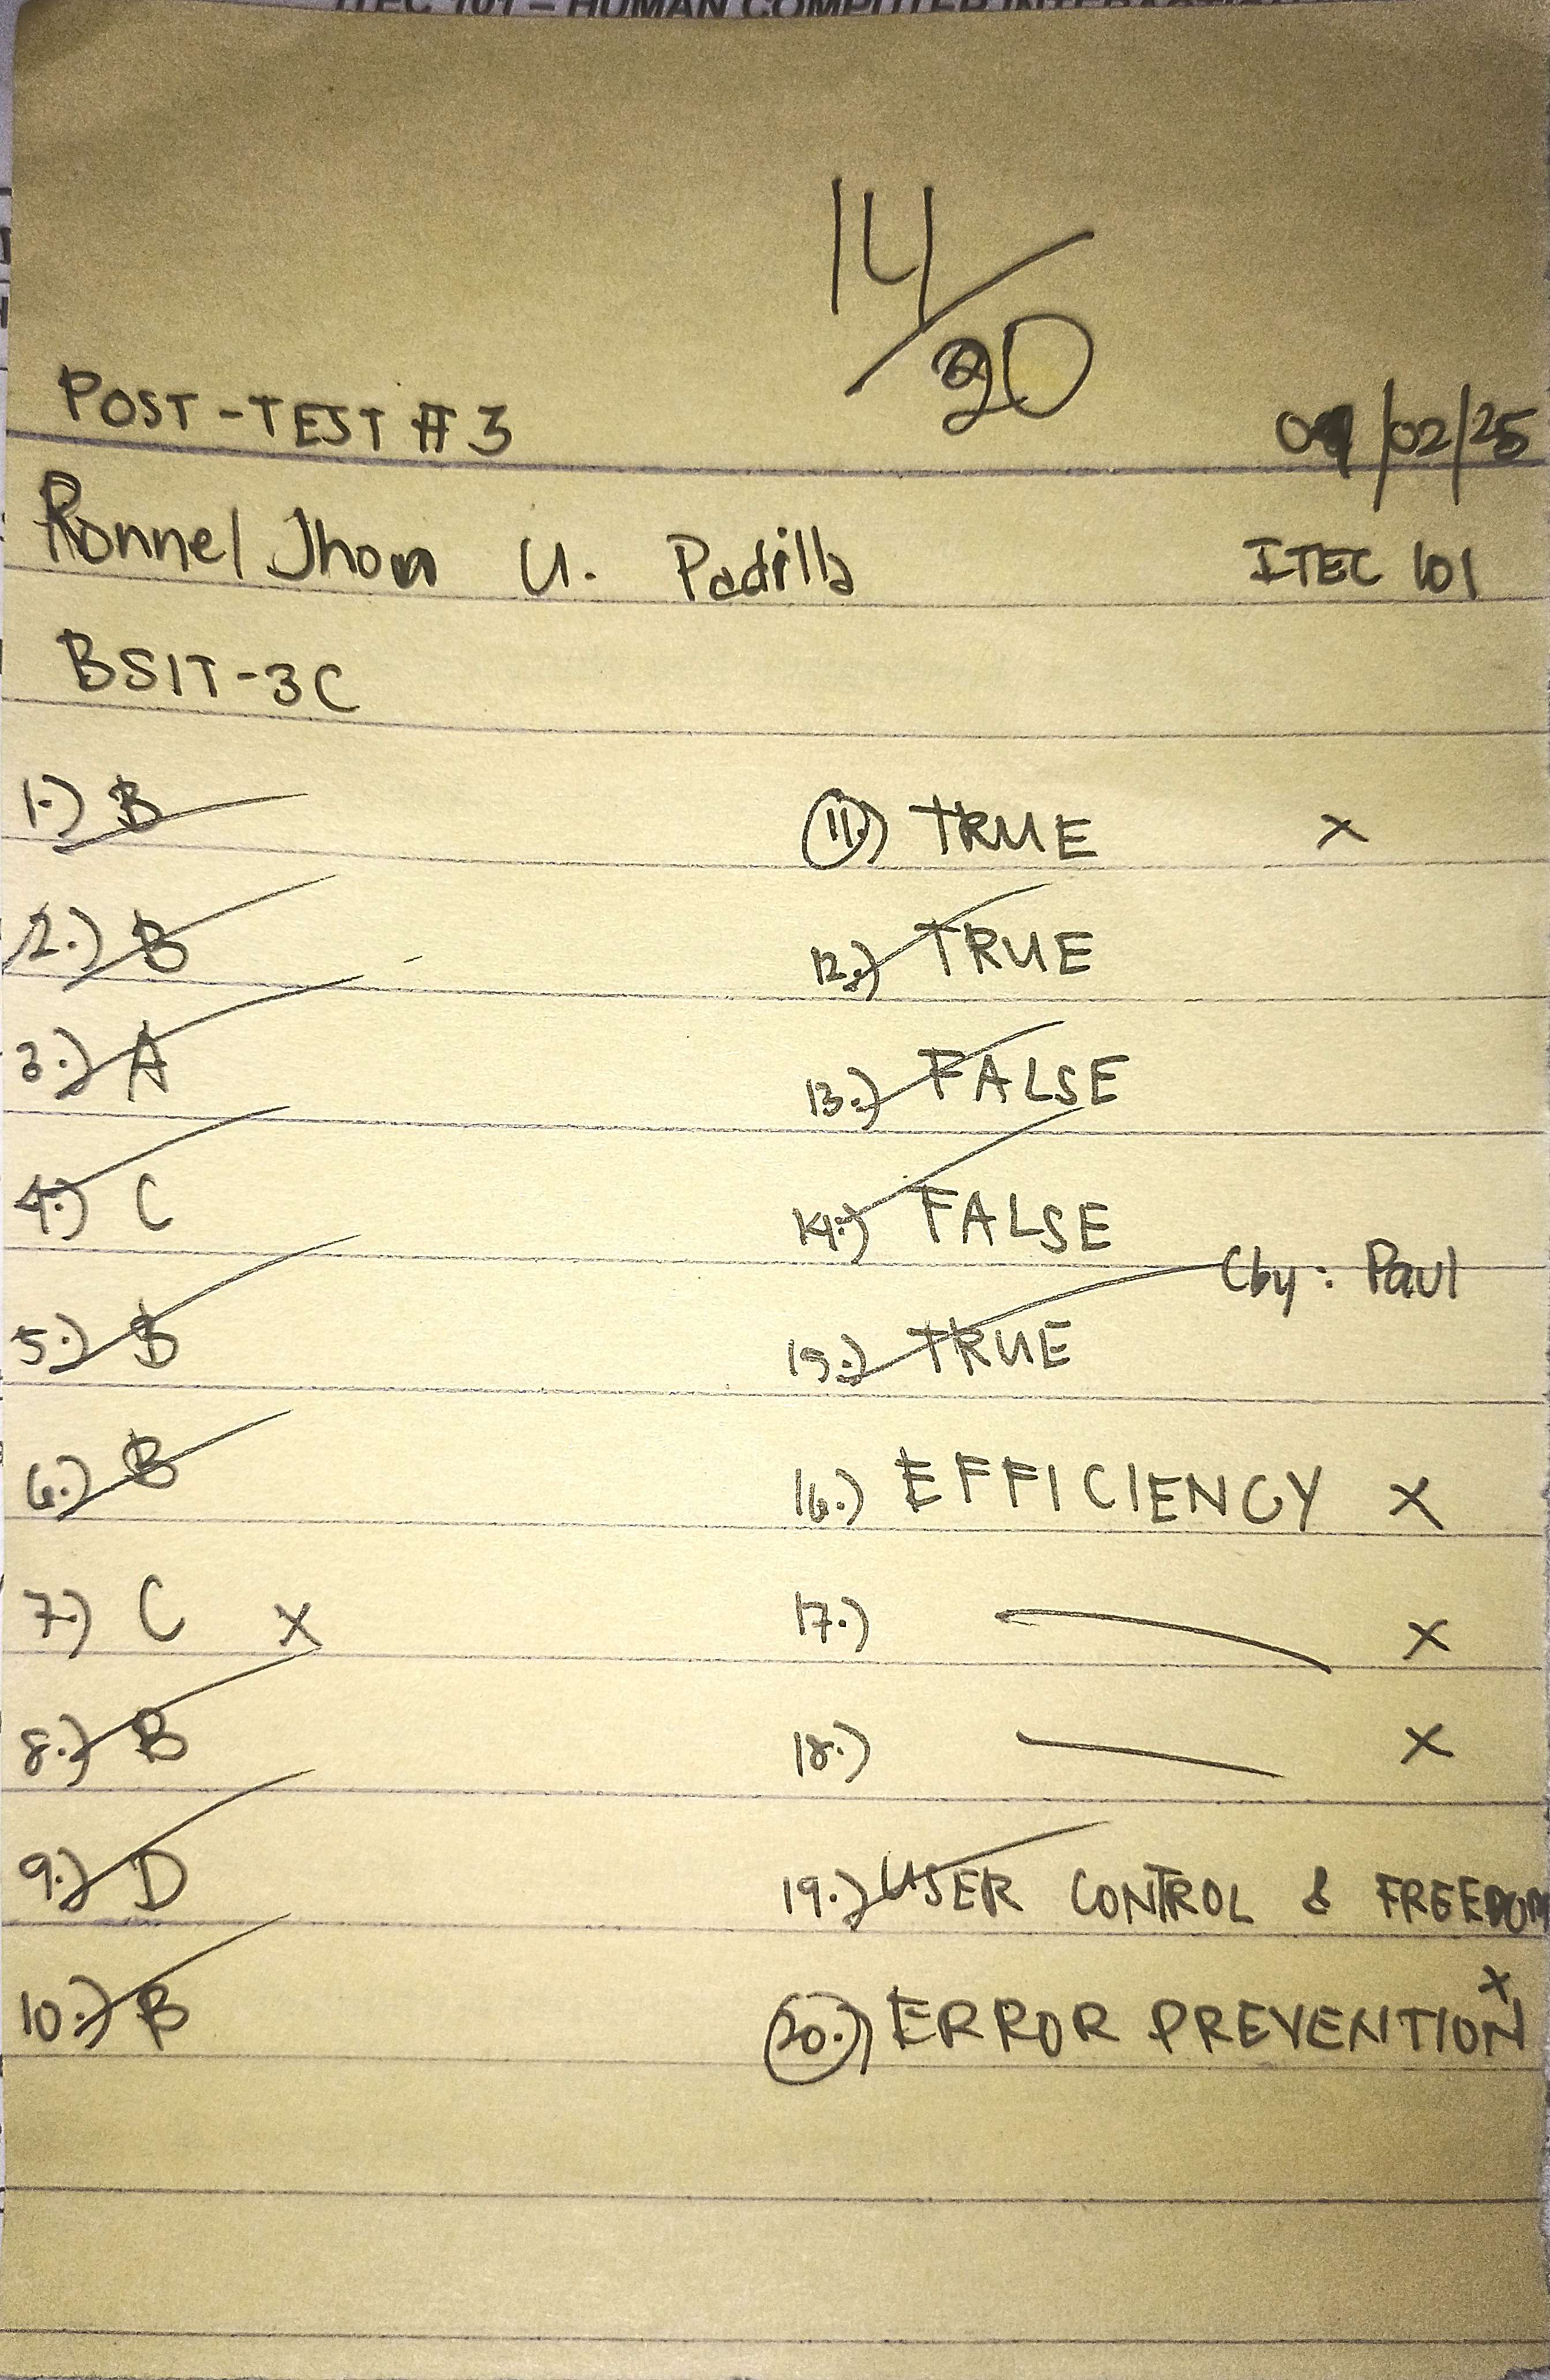 ITEC 101 – HUMAN COMPUTER INTERACTION
14/20
POST-TEST #3
09/02/25
Ronnel Jhon U. Padilla
ITEC 101
BSIT-3C
1.) B
2.) B
3.) A
4.) C
5.) B
6.) B
7.) C x
8.) B
9.) D
10.) B
11.) TRUE x
12.) TRUE
13.) FALSE
14.) FALSE
Cby: Paul
15.) TRUE
16.) EFFICIENCY x
17.) x
18.) x
19.) USER CONTROL & FREEDOM
20.) ERROR PREVENTION x